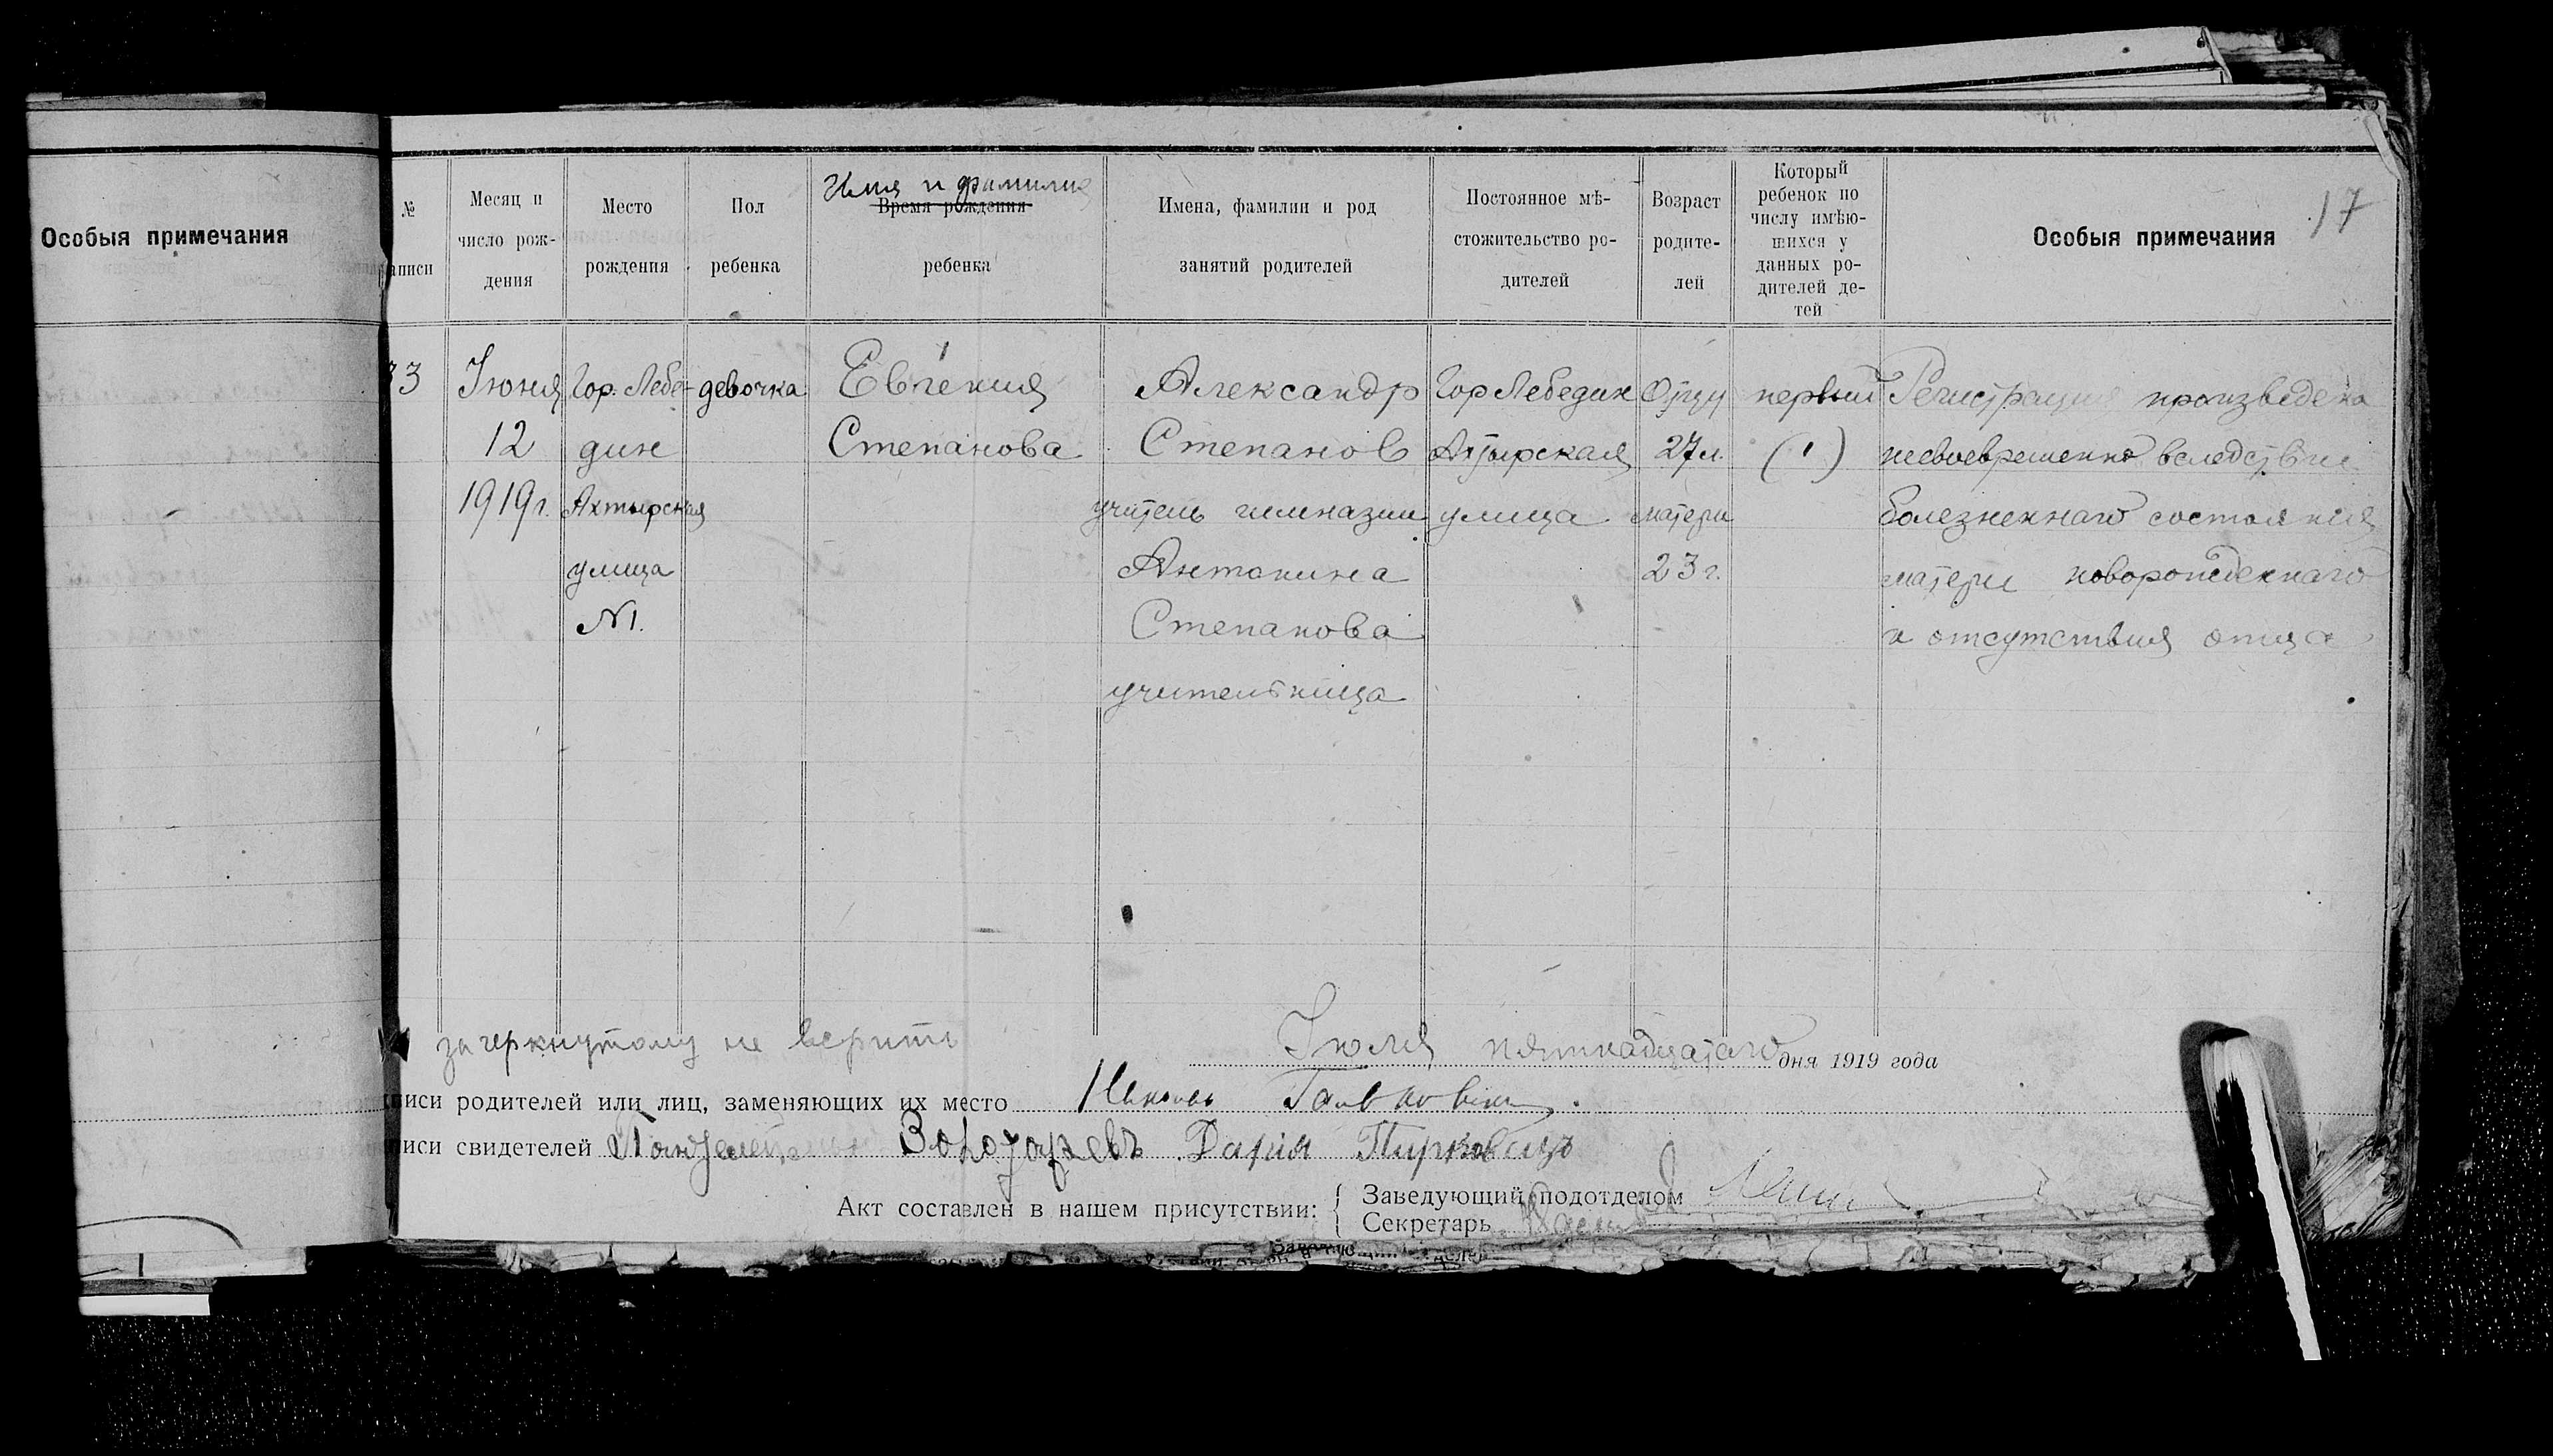 Особыя примечания
17
№ записи
Месяц и число рождения
Место рождения
Пол ребенка
Имя и фамилия
Время рождения
ребенка
Имена, фамилии и род занятий родителей
Постоянное мѣстожительство родителей
Возраст родителей
Который ребенок по числу имѣющихся у данных родителей детей
Особыя примечания
33
Июня
12
1919г.
Гор. Лебедин
Ахтырская
улица
№1.
девочка
Евгения
Степанова
Александр
Степанов
учитель гимназии
Антонина
Степанова
учительница
Гор Лебедин
Ахтырская
улица
Отцу
27 л.
матери
23 г.
первый
(1)
Регистрация произведена
несвоевременно вследствие
болезненнаго состояния
матери новорожденнаго
и отсутствия отца
зачеркнутому не верить
Июля пятнадцатаго дня 1919 года
писи родителей или лиц, заменяющих их место
писи свидетелей Дария
Акт составлен в нашем присутствии:
Заведующий подотделом
Секретарь